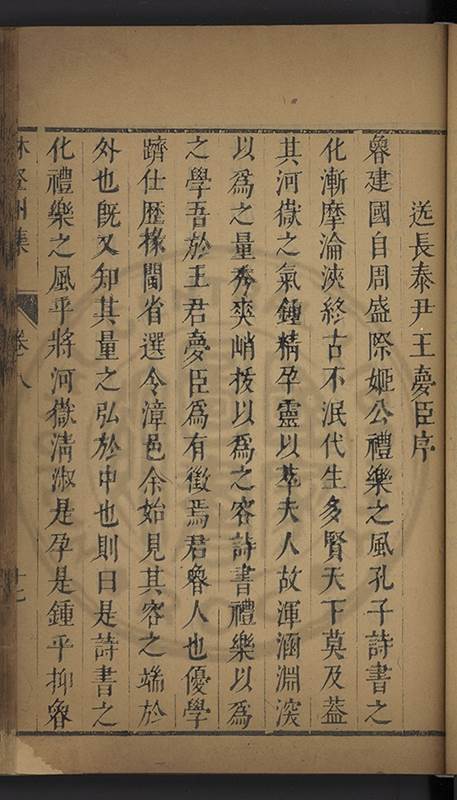 送長泰尹王慶臣序
魯建國自周盛際姬公禮樂之風孔子詩書之
化漸摩淪浹終古不泯代生多賢天下莫及蓋
其河嶽之氣鍾精孕靈以萃夫人故渾涵淵深
以爲之量秀爽峭拔以爲之容詩書禮樂以爲
之學吾於王君慶臣爲有徵焉君魯人也優學
躋仕歷掾閩省選令漳邑余始見其容之端於
外也旣又知其量之弘於中也則曰是詩書之
化禮樂之風乎將河嶽清淑是孕是鍾乎抑魯
林登州集 卷八 十七